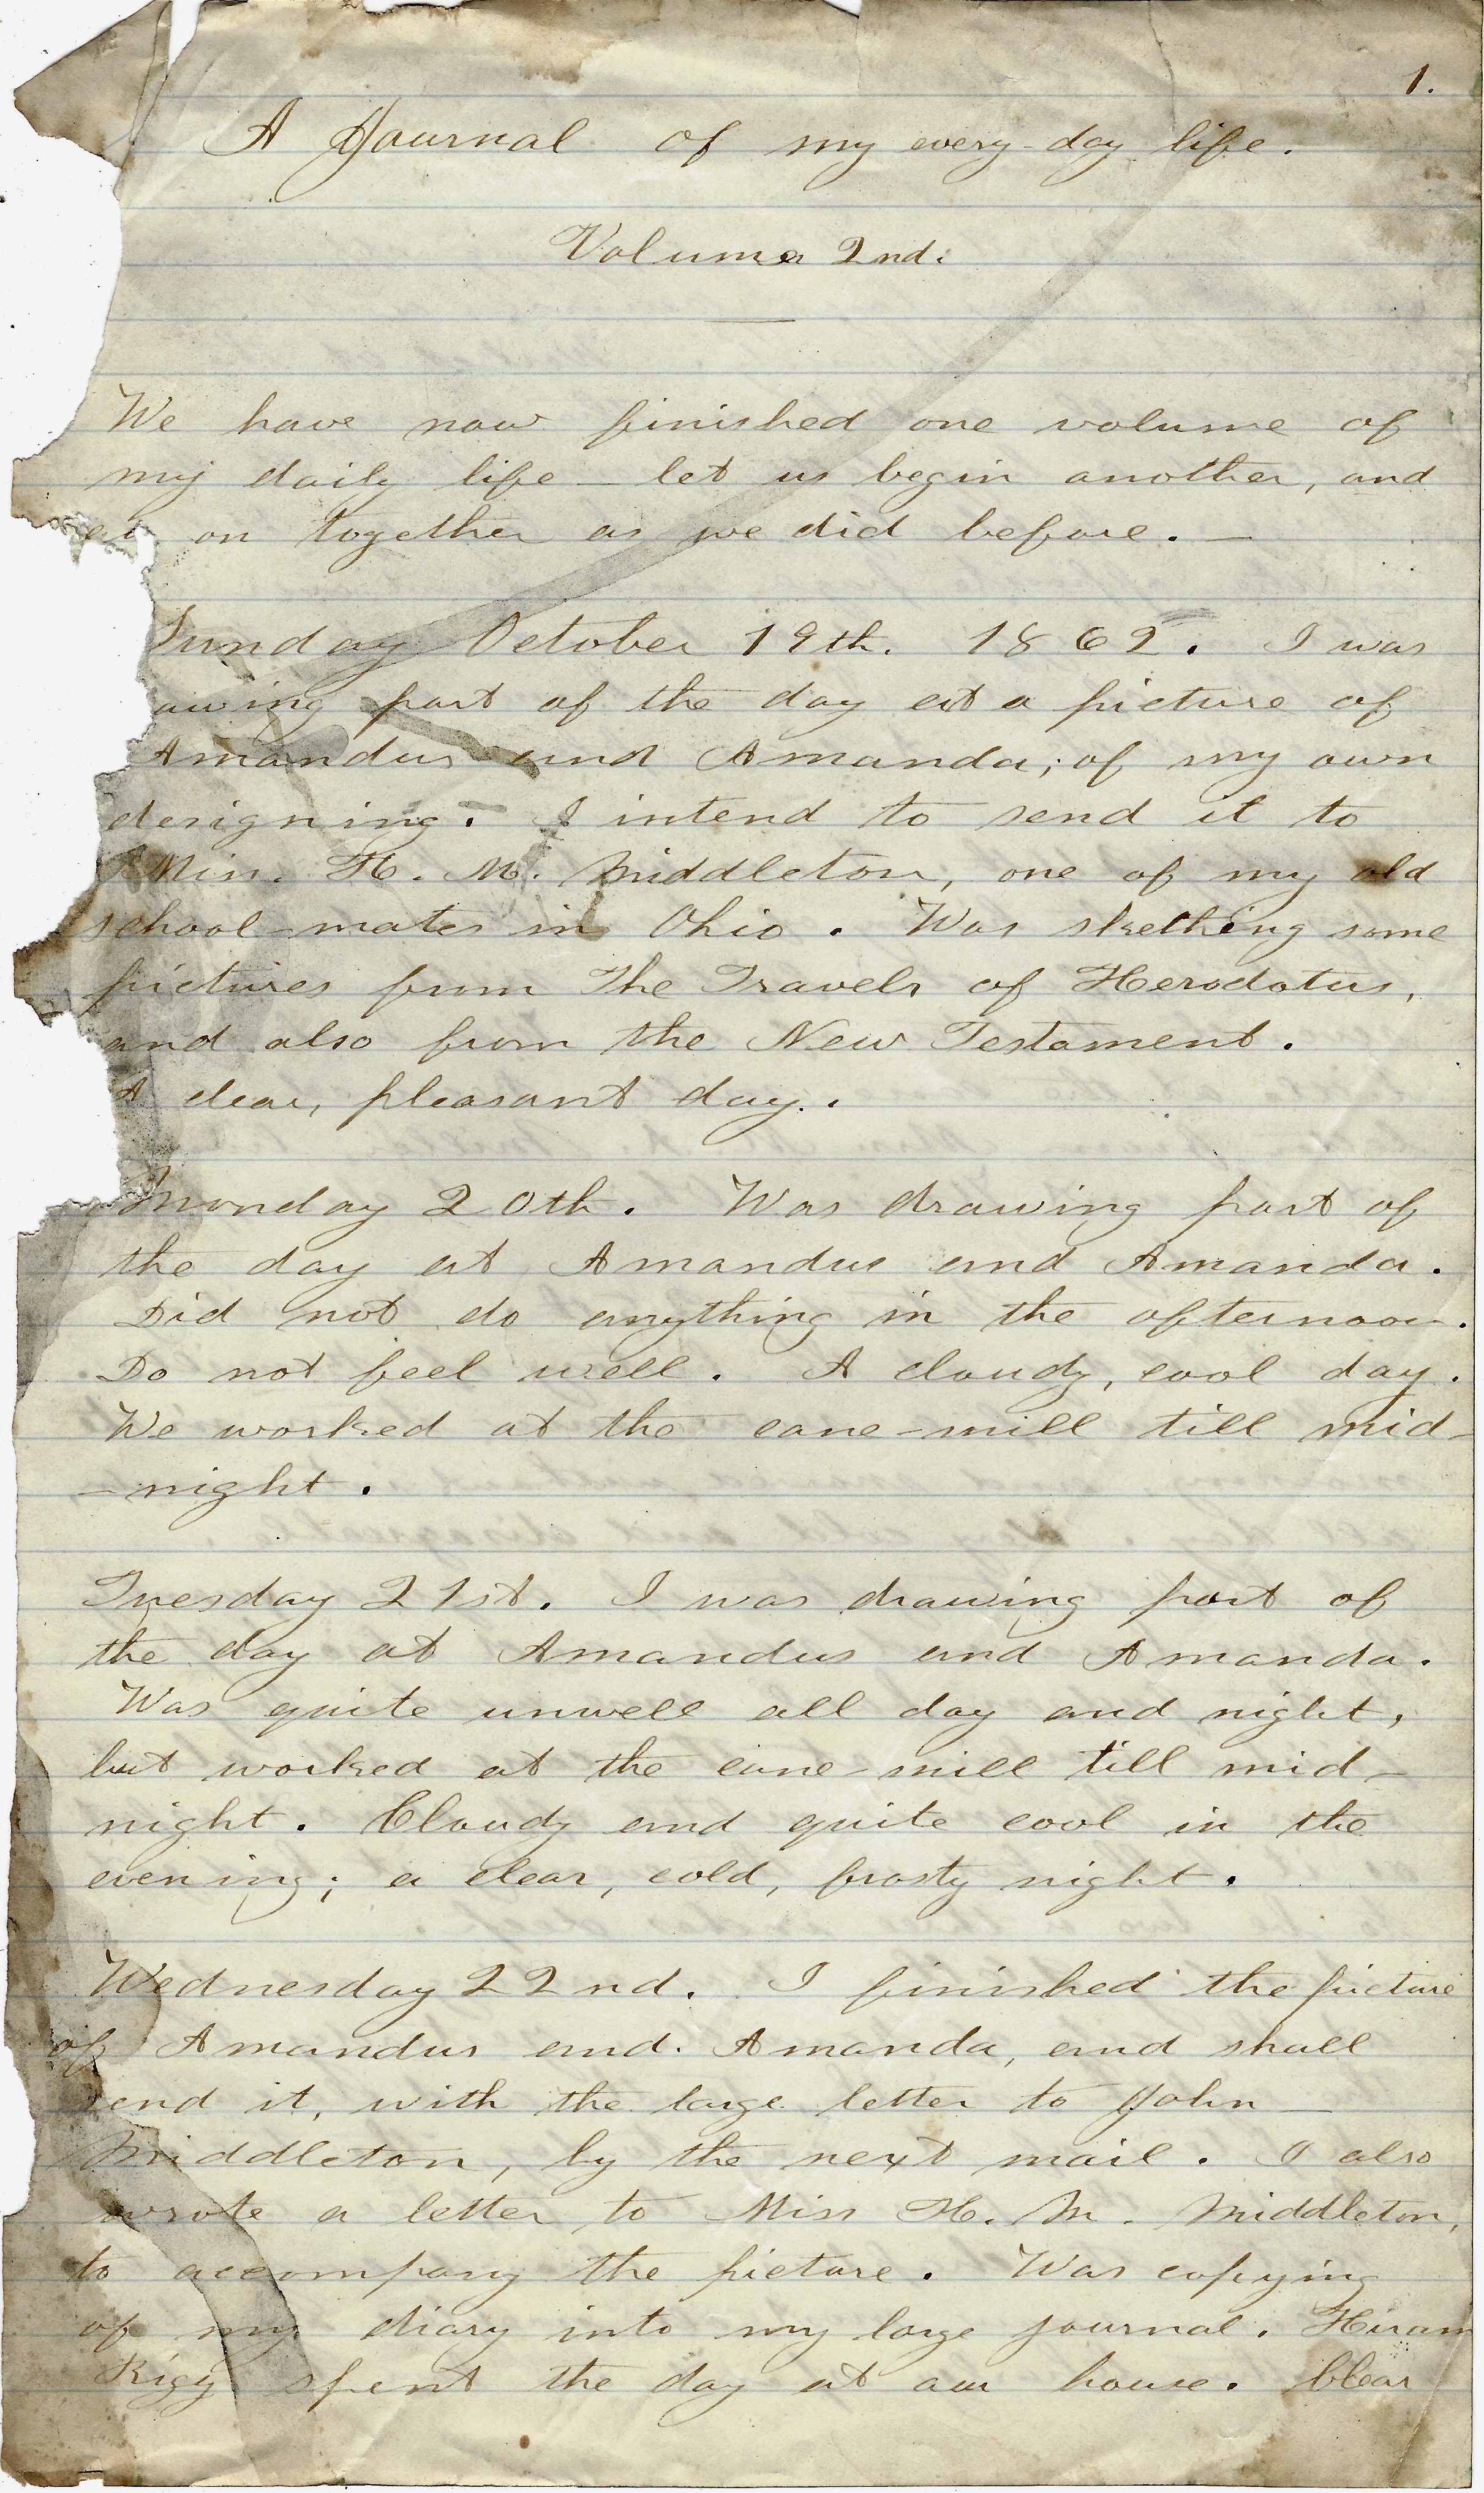 1.
A Journal of my every-day life.
Volume 2nd.
We have now finished one volume of
my daily life – let us begin another, and
on together as we did before. –
Sunday October 19th. 1862. I was
awing part of the day at a picture of
Amandus and Amanda; of my own
designing. I intend to send it to
Miss. H. M. Middleton, one of my old
school-mates in Ohio. Was skething some
pictures from The Travels of Herodotus,
and also from the New Testament.
A clear, pleasant day.
Monday 20th. Was drawing part of
the day at Amandus and Amanda.
Did not do anything in the afternoon.
Do not feel well. A cloudy, cool day.
We worked at the cane-mill till mid-
-night.
Tuesday 21st. I was drawing part of
the day at Amandus and Amanda.
Was quite unwell all day and night,
but worked at the cane-mill till mid-
night. Cloudy and quite cool in the
evening; a clear, cold, frosty night.
Wednesday 22nd. I finished the picture
of Amandus and. Amanda, and shall
send it, with the large letter to John –
Middleton, by the next mail. I also
wrote a letter to Miss H. M. Middleton,
to accompany the picture. Was copying
of my diary into my large journal. Hiram
Rigg spent the day at our house. Clear